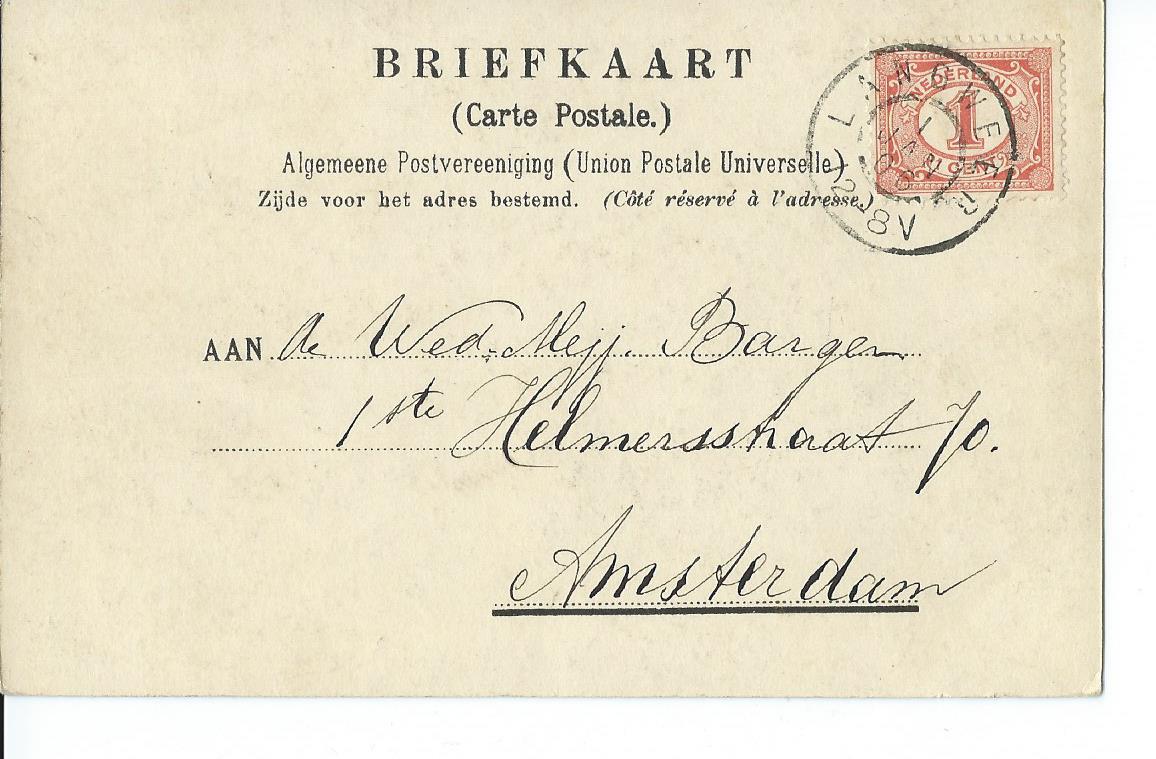 BRIEFKAART
(Carte Postale.)
Algemeene Postvereeniging (Union Postale Universelle)
Zijde voor het adres bestemd. (Côté réservé à l'adresse.)
NEDERLAND
1
CENT
LANGWEER
12-8V
AAN de Wed. Mejj. Bargen
1ste Helmersstraat 70.
Amsterdam